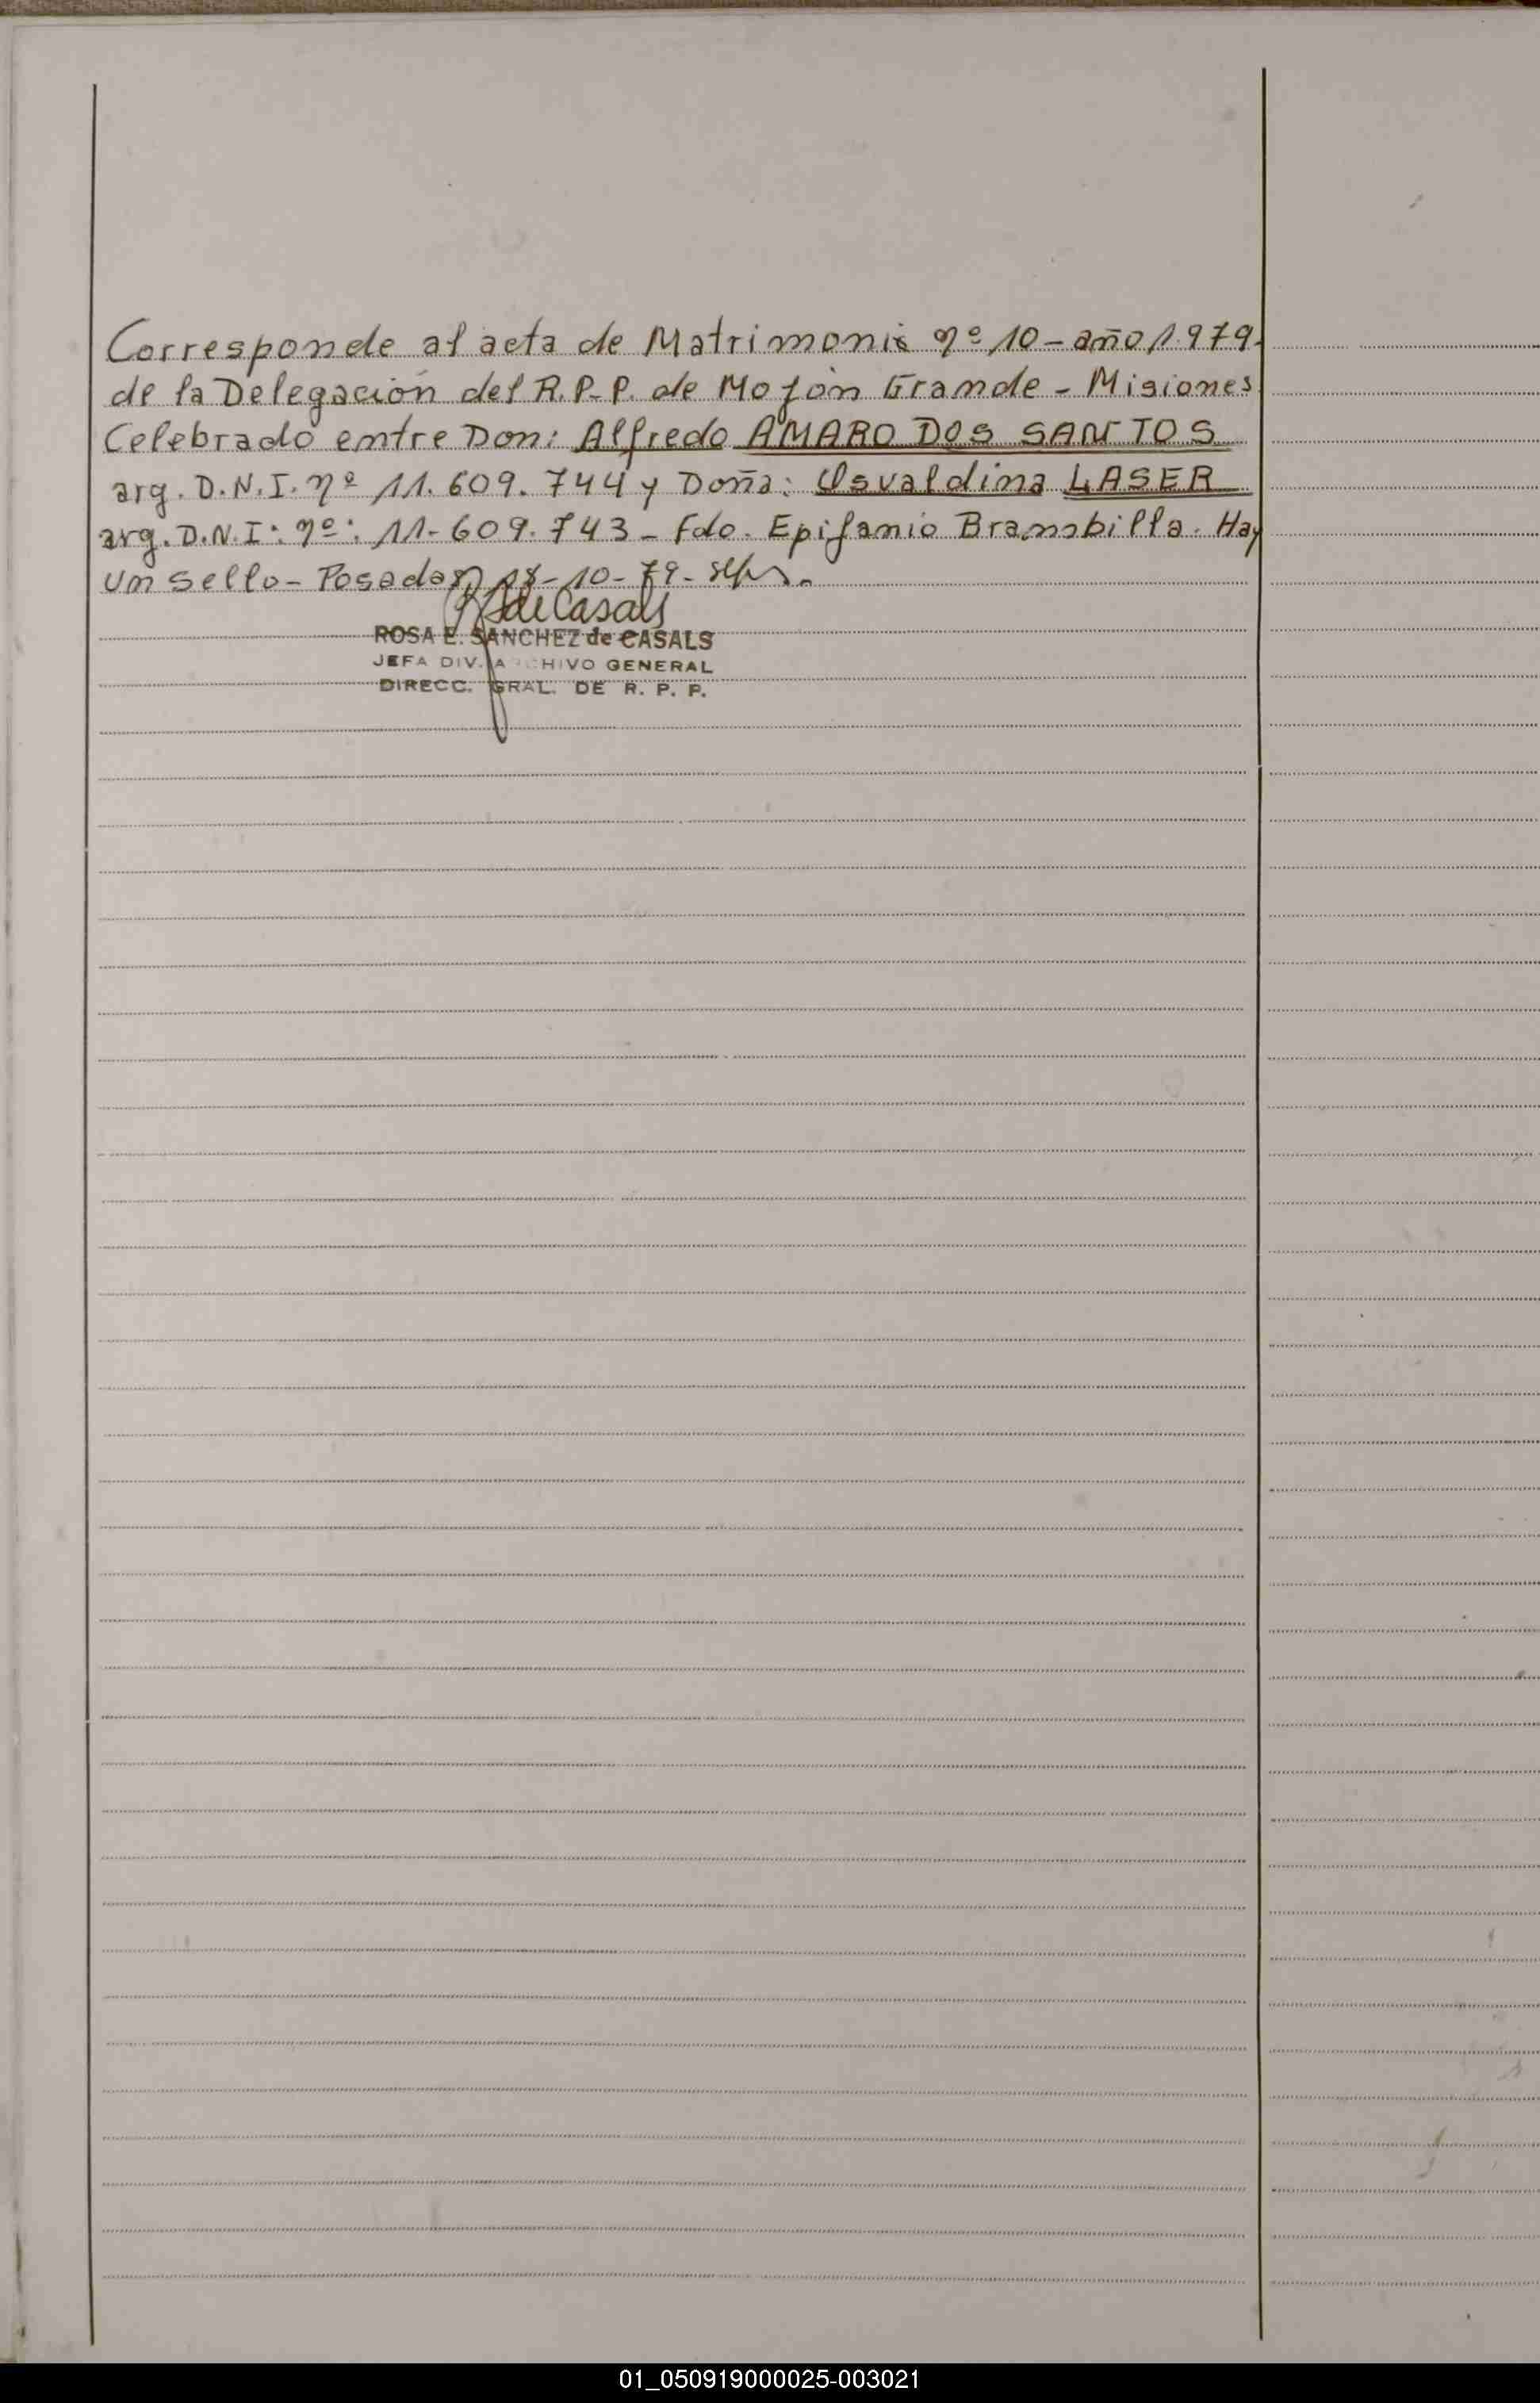 Corresponde al acta de Matrimonio nº 10 - año 1.979.
de la Delegación del R.P.P. de Mojón Grande - Misiones
Celebrado entre Don: Alfredo AMARO DOS SANTOS
arg. D.N.I. nº 11.609.744 y Doña: Osvaldina LASER
arg. D.N.I: nº: 11-609.743 - Fdo. Epifanio Brambilla. Hay
un sello - Posadas, 18-10-79-
R S de Casals
ROSA E. SANCHEZ de CASALS
JEFA DIV. ARCHIVO GENERAL
DIRECC. GRAL. DE R. P. P.
01_050919000025-003021